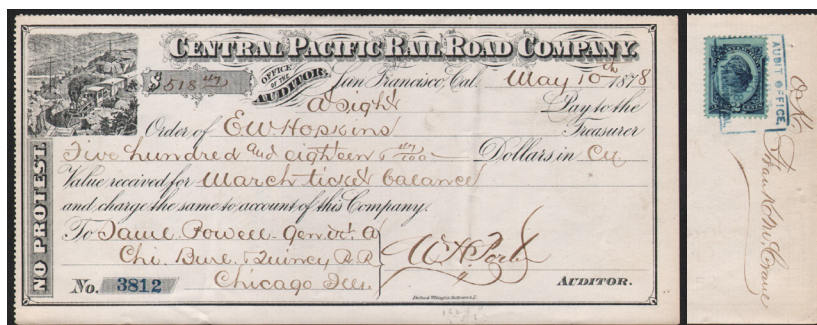 CENTRAL PACIFIC RAIL ROAD COMPANY.
$518
OFFICE OF THE AUDITOR,
San Francisco, Cal. May 10th 1878
At Sight Pay to the
Order of E W Hopkins Treasurer
Five hundred and eighteen /100 Dollars in Cy
Value received for March ticket balance
and charge the same to account of this Company.
To Saml. Powell Genl. A
Chi. Burl. & Quincy R.R.
Chicago Ills.
NO PROTEST
No. 3812
AUDITOR.
AUDIT OFFICE
O.K.